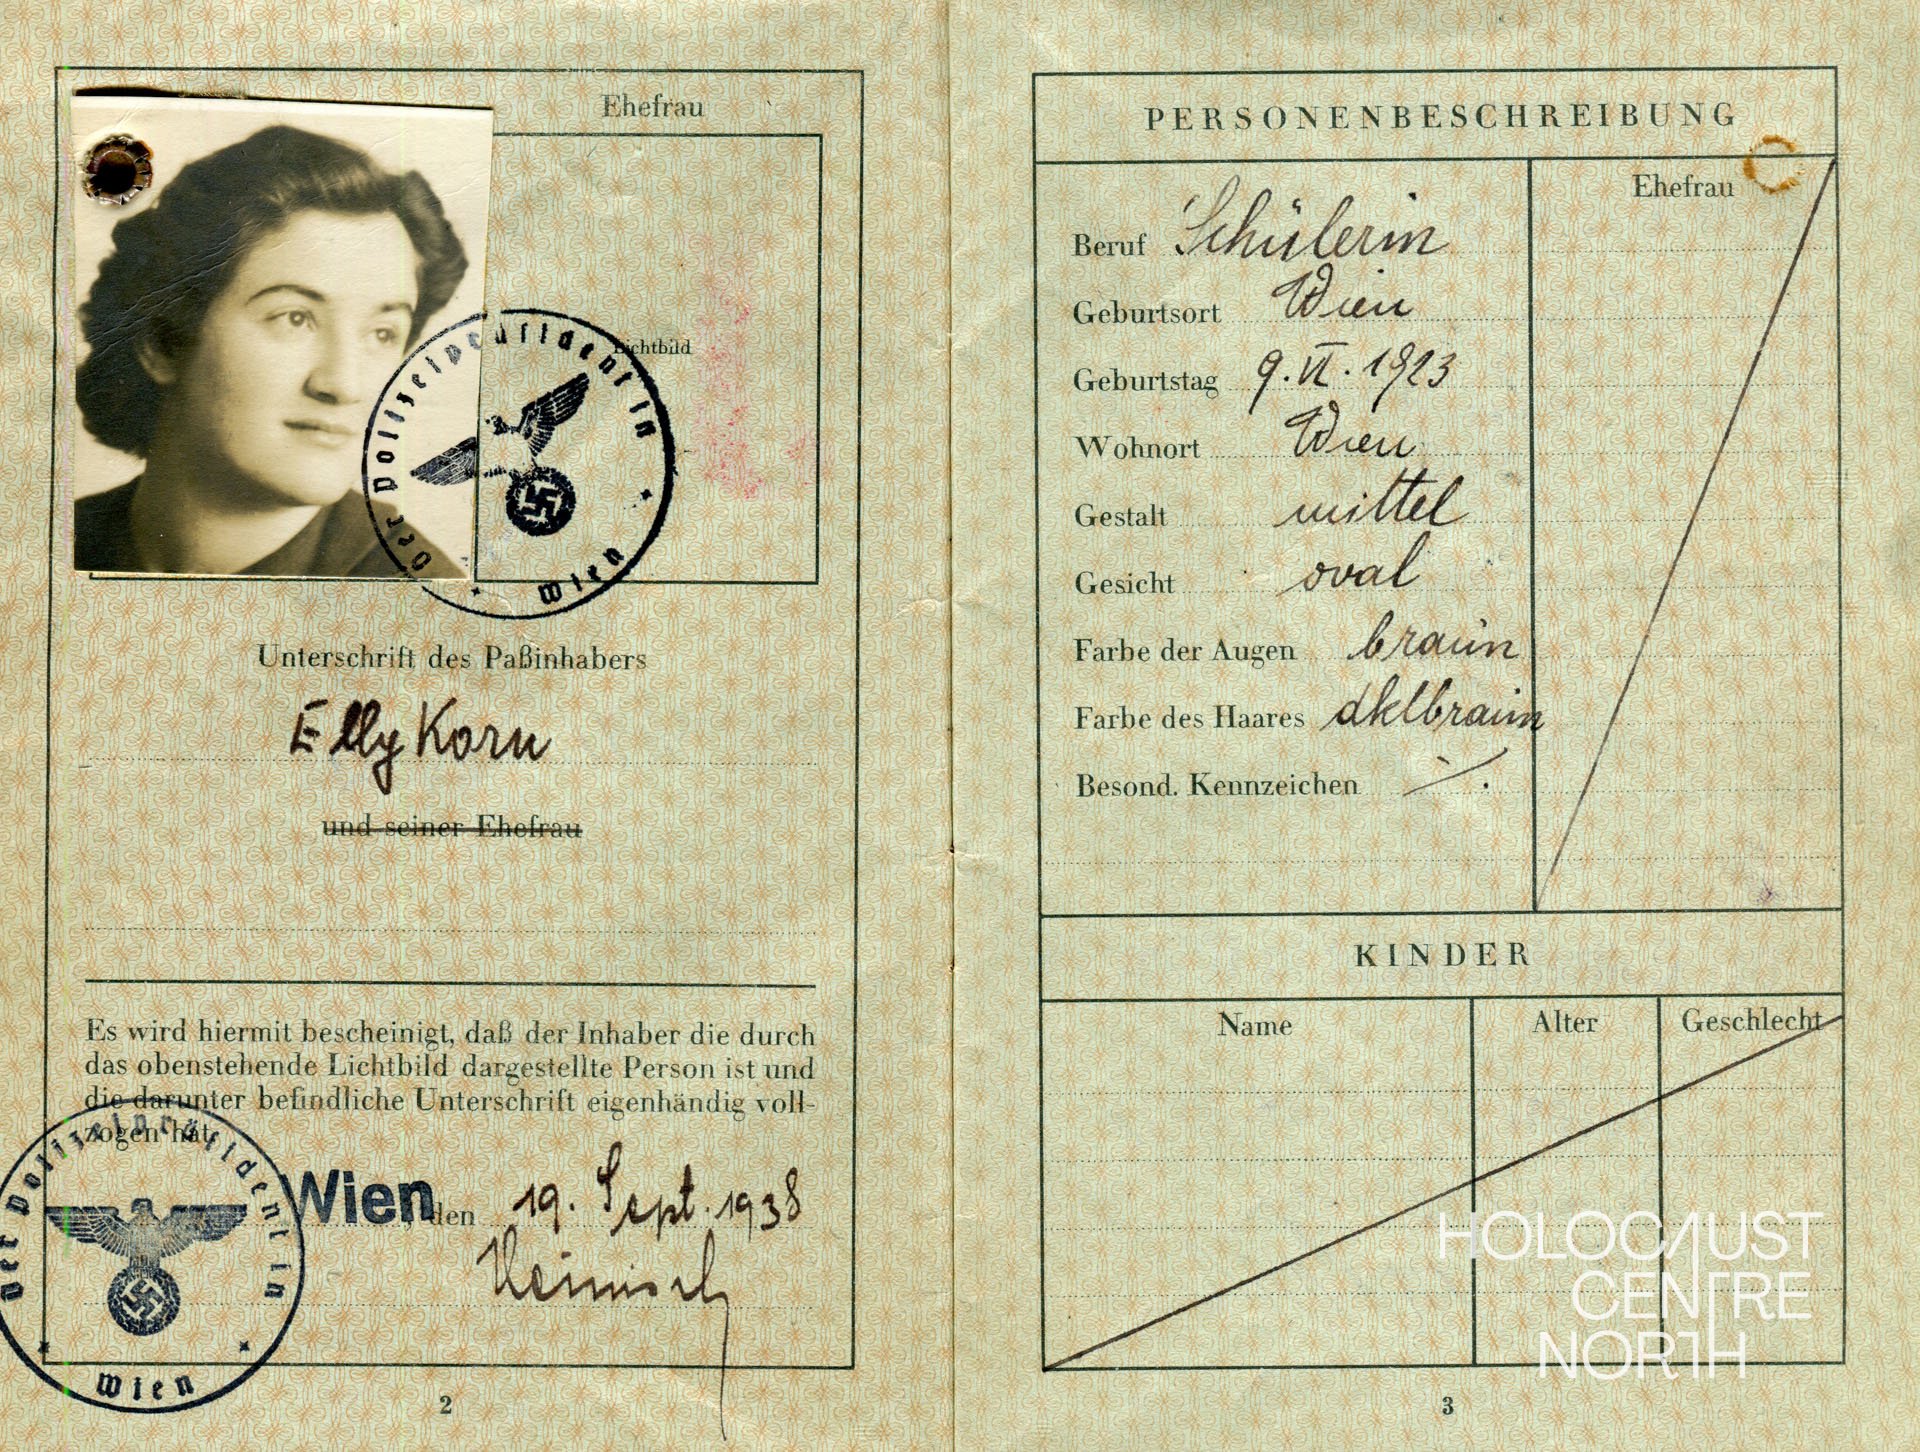 Ehefrau
Lichtbild
Der Polizeipräsident in
Wien
Unterschrift des Paßinhabers
Elly Korn
und seiner Ehefrau
Es wird hiermit bescheinigt, daß der Inhaber die durch
das obenstehende Lichtbild dargestellte Person ist und
die darunter befindliche Unterschrift eigenhändig voll-
zogen hat.
Der Polizeipräsident in
Wien
Wien, den 19. Sept. 1938
2
PERSONENBESCHREIBUNG
Ehefrau
Beruf Schülerin
Geburtsort Wien
Geburtstag 9. VI. 1923
Wohnort Wien
Gestalt mittel
Gesicht oval
Farbe der Augen braun
Farbe des Haares dklbraun
Besond. Kennzeichen ./.
KINDER
Name Alter Geschlecht
HOLOCAUST
CENTRE
NORTH
3